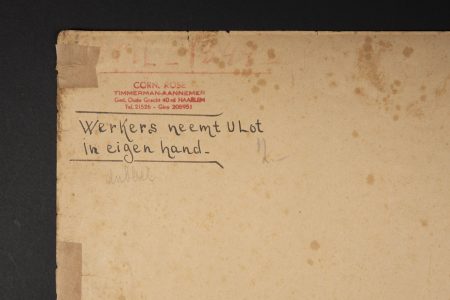 CORN. ROSE
TIMMERMAN-AANNEMER
Ged. Oude Gracht 40 rd HAARLEM
Tel. 21526 - Giro 205951
Werkers neemt U Lot
in eigen hand-
12.-
dubbel